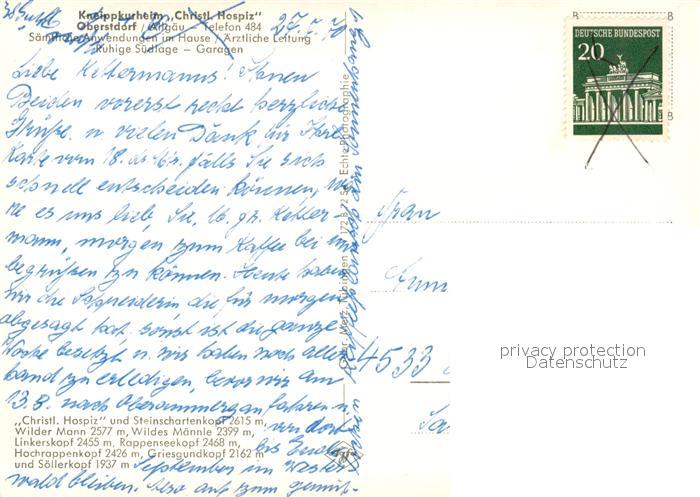 Kneippkurheim „Christl. Hospiz"
Oberstdorf / Allgäu - Telefon 484
Sämtliche Anwendungen im Hause - Ärztliche Leitung
Ruhige Südlage - Garagen
27. 7. 70
Liebe Kettermanns! Ihnen
Beiden vorerst recht herzliche
Grüße u vielen Dank für Ihre
Karte vom 18. ds. Falls Sie sich
schnell entscheiden können, wä-
re es uns lieb, Sie, lb. Ketter-
mann, morgen zum Kaffee bei uns
begrüßen zu können. Heute haben
wir die Schneiderin die für morgen
abgesagt hat, sonst ist die ganze
Woche besetzt u. wir haben noch aller-
hand zu erledigen, bevor wir am
13.8. nach Oberammergau fahren u.
von dort
bis Ende
September im Wester-
wald bleiben. Also auf zum gemüt-
„Christl. Hospiz" und Steinschartenkopf 2615 m,
Wilder Mann 2577 m, Wildes Männle 2399 m,
Linkerskopf 2455 m, Rappenseekopf 2468 m,
Hochrappenkopf 2426 m, Griesgundkopf 2162 m
und Söllerkopf 1937 m
Metz, Tübingen 172 B 72 Echte Photographie
DEUTSCHE BUNDESPOST
20
Frau
4533
privacy protection
Datenschutz